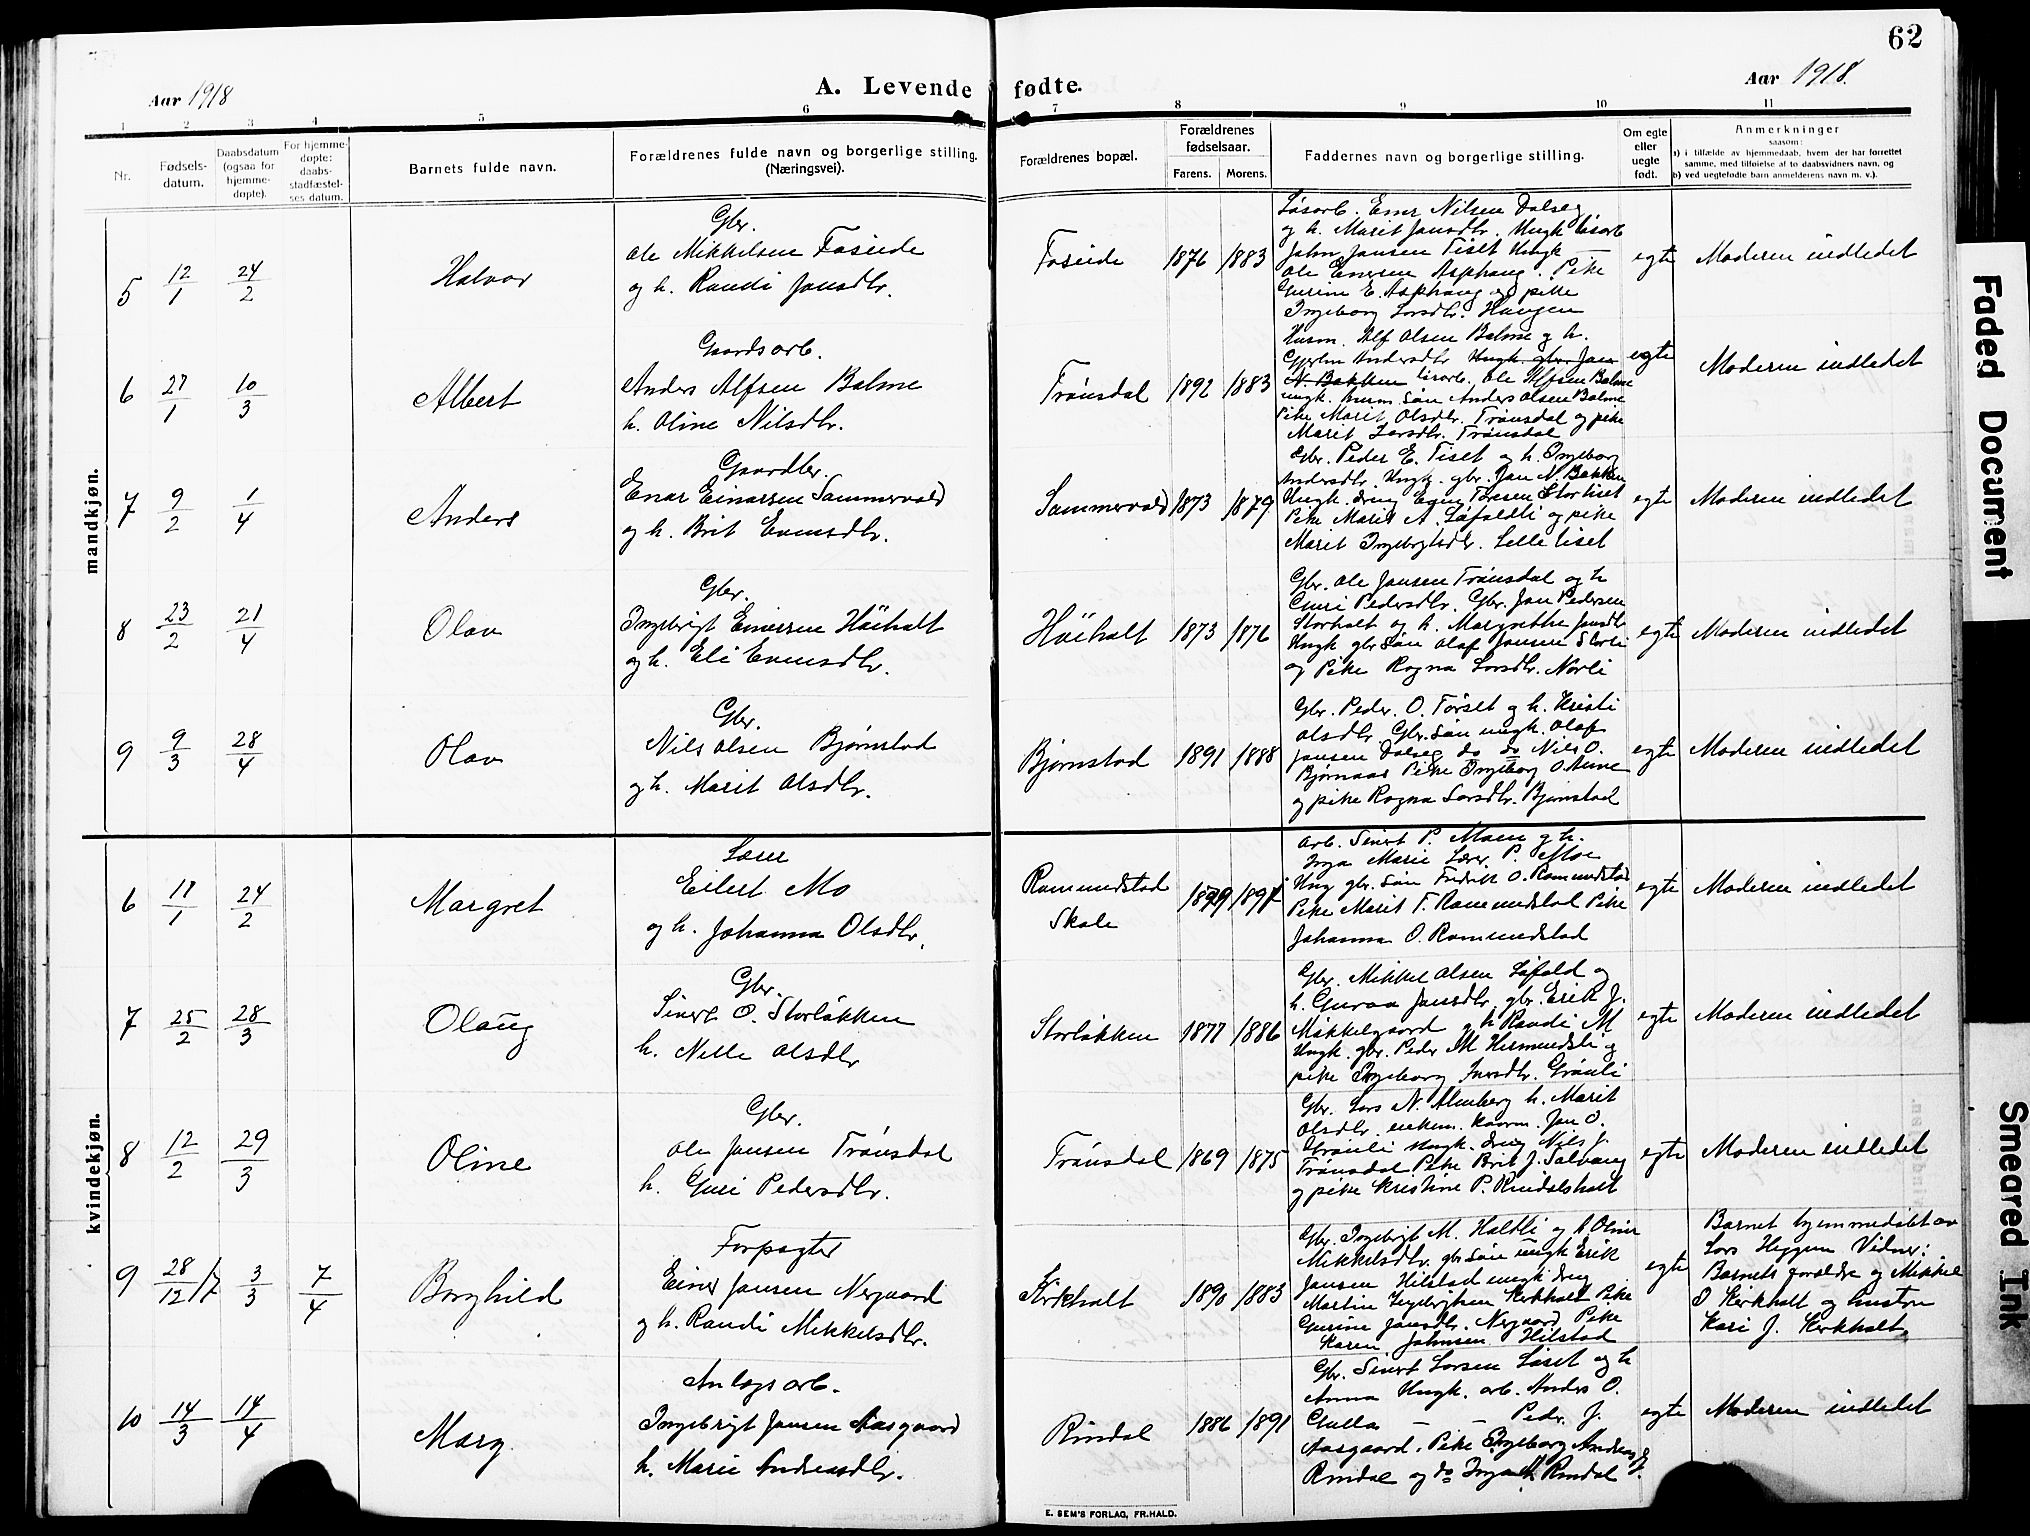 62
Aar 1918
A. Levende fødte.
Aar 1918.
1 2 3 4 5 6 7 8 9 10 11
Nr.
Fødsels-
datum.
Daabsdatum
(ogsaa for
hjemme-
døpte).
For hjemme-
døpte:
daabs-
stadfæstel-
ses datum.
Barnets fulde navn.
Forældrenes fulde navn og borgerlige stilling.
(Næringsvei).
Forældrenes bopæl.
Forældrenes
fødselsaar.
Farens. Morens.
Faddernes navn og borgerlige stilling.
Om egte
eller
uegte
født.
Anmerkninger
saasom:
a) i tilfælde av hjemmedaab, hvem der har forrettet
samme, med tilføielse af to daabsvidners navn, og
b) ved uegtefødte barn anmelderens navn m. v.).
mandkjøn.
5 12/1 24/2 Halvor
Gbr.
Ole Mikkelsen Foseide
og h. Randi Jonsdtr.
Foseide 1876 1883
Løsarb. Ener Nilsen Dalseg
og h. Marit Jonsdtr. Ungk. løsarb
John Jansen Tiset Ungk —
Ole Enersen Asphaug. Pike
Gurine E. Asphaug og pike
Ingeborg Larsdtr. Haugen
egte Moderen indledet
6 27/1 10/3 Albert
Gaardsarb.
Anders Alfsen Bolme
h. Oline Nilsdtr.
Trønsdal 1892 1883
Husm. Alf Olsen Bolme og h.
Andersdtr Ungk. gbr. Jan
N. Bakken løsarb. Ole Alfsen Bolme
ungk. husm. søn Anders Olsen Bolme
Pike Marit Olsdtr. Trønsdal og pike
Marit Larsdtr. Trønsdal
egte Moderen indledet
7 9/2 1/4 Anders
Gaardbr.
Enar Einarsen Sammervold
og h. Brit Evensdtr.
Sammervold 1873 1879
Gbr. Peder E. Tiset og h. Ingeborg
Andersdtr. Ungk. gbr. Jan N. Bakken
Ungk. dreng Storliset
Pike Marit A. Løfaldli og pike
Marit Ingebrigtsdtr. Lilleliset
egte Moderen indledet
8 23/2 21/4 Olav
Gbr.
Ingebrigt Einersen Høiholt
og h. Eli Evensdtr.
Høiholt 1873 1876
Gbr. Ole Jansen Trønsdal og h
Guri Pedersdtr. Gbr. Jan Pedersen
Storholt og h. Margrethe Jansdtr
Ungk gbr søn Olaf Jansen Storli
og Pike Ragna Larsdtr. Norli
egte Moderen indledet
9 9/3 28/4 Olav
Gbr.
Nils Olsen Bjørnstad
og h. Marit Olsdtr.
Bjørnstad 1891 1888
Gbr. Peder. O. Tørset og h. Kristi
Olsdtr Gbr. Søn ungk. Olaf
Jansen Dalseg do do Nils O.
Bjørnaas Pike Ingeborg O.
og pike Ragna Larsdtr. Bjørnstad
egte Moderen indledet
kvindekjøn.
6 17/1 24/2 Margret
Lærer
Eilert Mo
og h. Johanna Olsdtr.
Romundstad
Skole
Arb. Sivert P. Moen og h.
Inga Marie Lærer P. Moe
Ung gbr. Søn Fredrik O. Romundstad
Pike Marit F. Romundstad Pike
Johanna O. Romundstad
egte Moderen indledet
7 25/2 28/3 Olaug
Gbr.
Sivert O. Storløkken
h. Nille Olsdtr
Storløkken 1877 1886
Gbr. Mikkel Olsen Løfald og
h. Guroa Jansdtr, gbr. Erik J.
Mikkelgaard og h Randi M
Ungk. gbr. Peder M Hermundsli og
pike Ingeborg Larsdtr. Grønli
egte Moderen indledet
8 12/2 29/3 Oline
Gbr.
Ole Jansen Trønsdal
h. Guri Pedersdtr.
Trønsdal 1869 1875
Gbr. Lars N. Almberg h. Marit
Olsdtr. enkem. kaarm. Jan O.
Grønli Ungk. dreng Nils J.
Trønsdal Pike Brit J. Salvaag
og pike Kristine P. Rindalsholt
egte Moderen indledet
9 28/12 17 3/3 7/4 Borghild
Forpagter
Einer Jansen Nergaard
og h. Randi Mikkelsdtr.
1890 1883
Gbr. Ingebrigt M. Holdli og h Oline
Mikkelsdtr. gbr søn ungk Erik
Jansen Hilstad ungk dreng
Martin Ingebrigtsen Kerkholt Pike
Gurine Jansdtr. Nergaard, Pike
Karen Johnsen Hilstad
egte
Barnet hjemmedøbt av
Lars Heggem Vidner:
Barnets forældre og Mikkel
O Kerkholt og hustru
Kari J. Kerkholt.
10 14/3 14/4 Mary
Anlegsarb.
Ingebrigt Jansen Aasgaard
h. Marie Andreasdtr.
Rindal 1886 1891
Gbr. Sivert Larsen Løset og h
Anna Ungk. arb. Anders O.
Gulla — — Peder J.
Aasgaard. Pike Ingeborg Andreas
Rindal og do Inga M. Rindal
egte Moderen indledet
E. SEM'S FORLAG, FR.HALD.
Faded Document
Smeared Ink